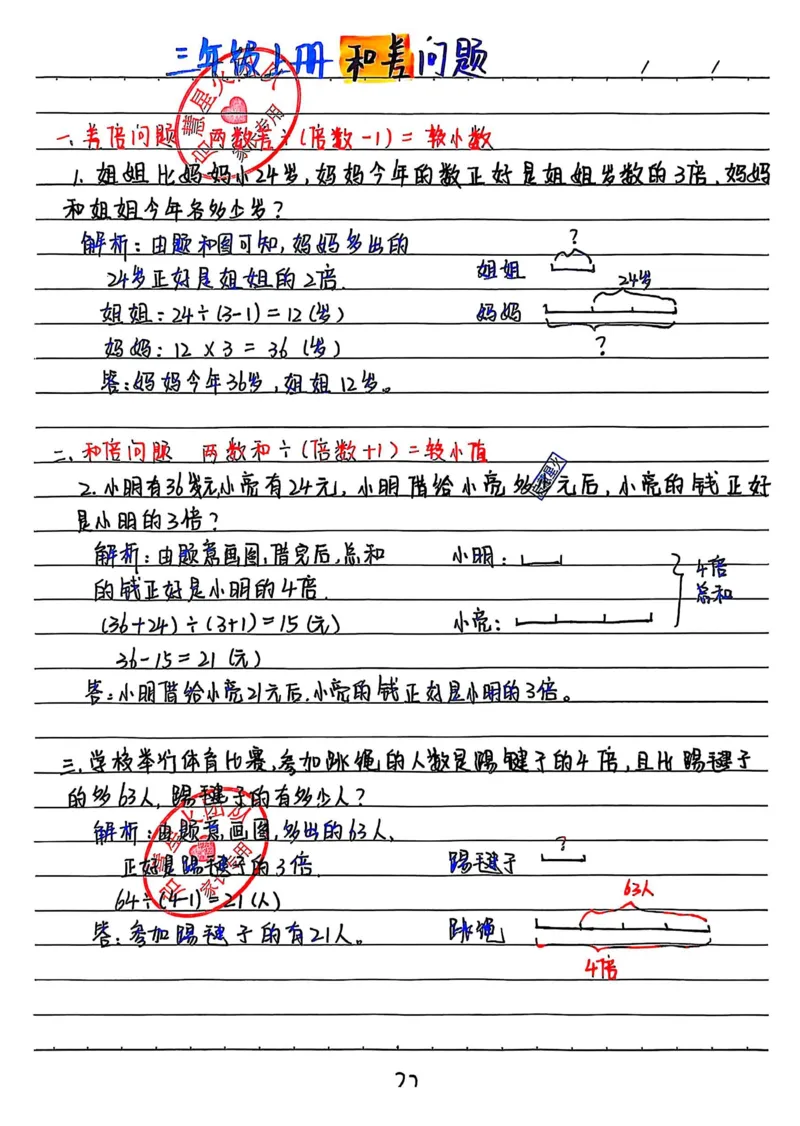 三年级上册 和差问题
一、差倍问题 两数差÷(倍数-1)=较小数
1. 姐姐比妈妈小24岁,妈妈今年的数正好是姐姐岁数的3倍.妈妈
和姐姐今年各多少岁?
解析:由题和图可知,妈妈多出的
24岁正好是姐姐的2倍.
姐姐:24÷(3-1)=12(岁)
妈妈:12×3=36(岁)
答:妈妈今年36岁,姐姐12岁。
姐姐
?
妈妈
24岁
?
二、和倍问题 两数和÷(倍数+1)=较小值
2.小明有36元,小亮有24元,小明借给小亮多少元后,小亮的钱正好
是小明的3倍?
解析:由题意画图,借完后,总和
的钱正好是小明的4倍.
(36+24)÷(3+1)=15(元)
36-15=21(元)
答:小明借给小亮21元后.小亮的钱正好是小明的3倍。
小明:
小亮:
4倍
总和
三、学校举行体育比赛,参加跳绳的人数是踢键子的4倍,且比踢毽子
的多63人,踢毽子的有多少人?
解析:由题意,画图,多出的63人,
正好是踢毽子的3倍.
64÷(4-1)=21(人)
答:参加踢毽子的有21人。
踢毽子
?
63人
跳绳
4倍